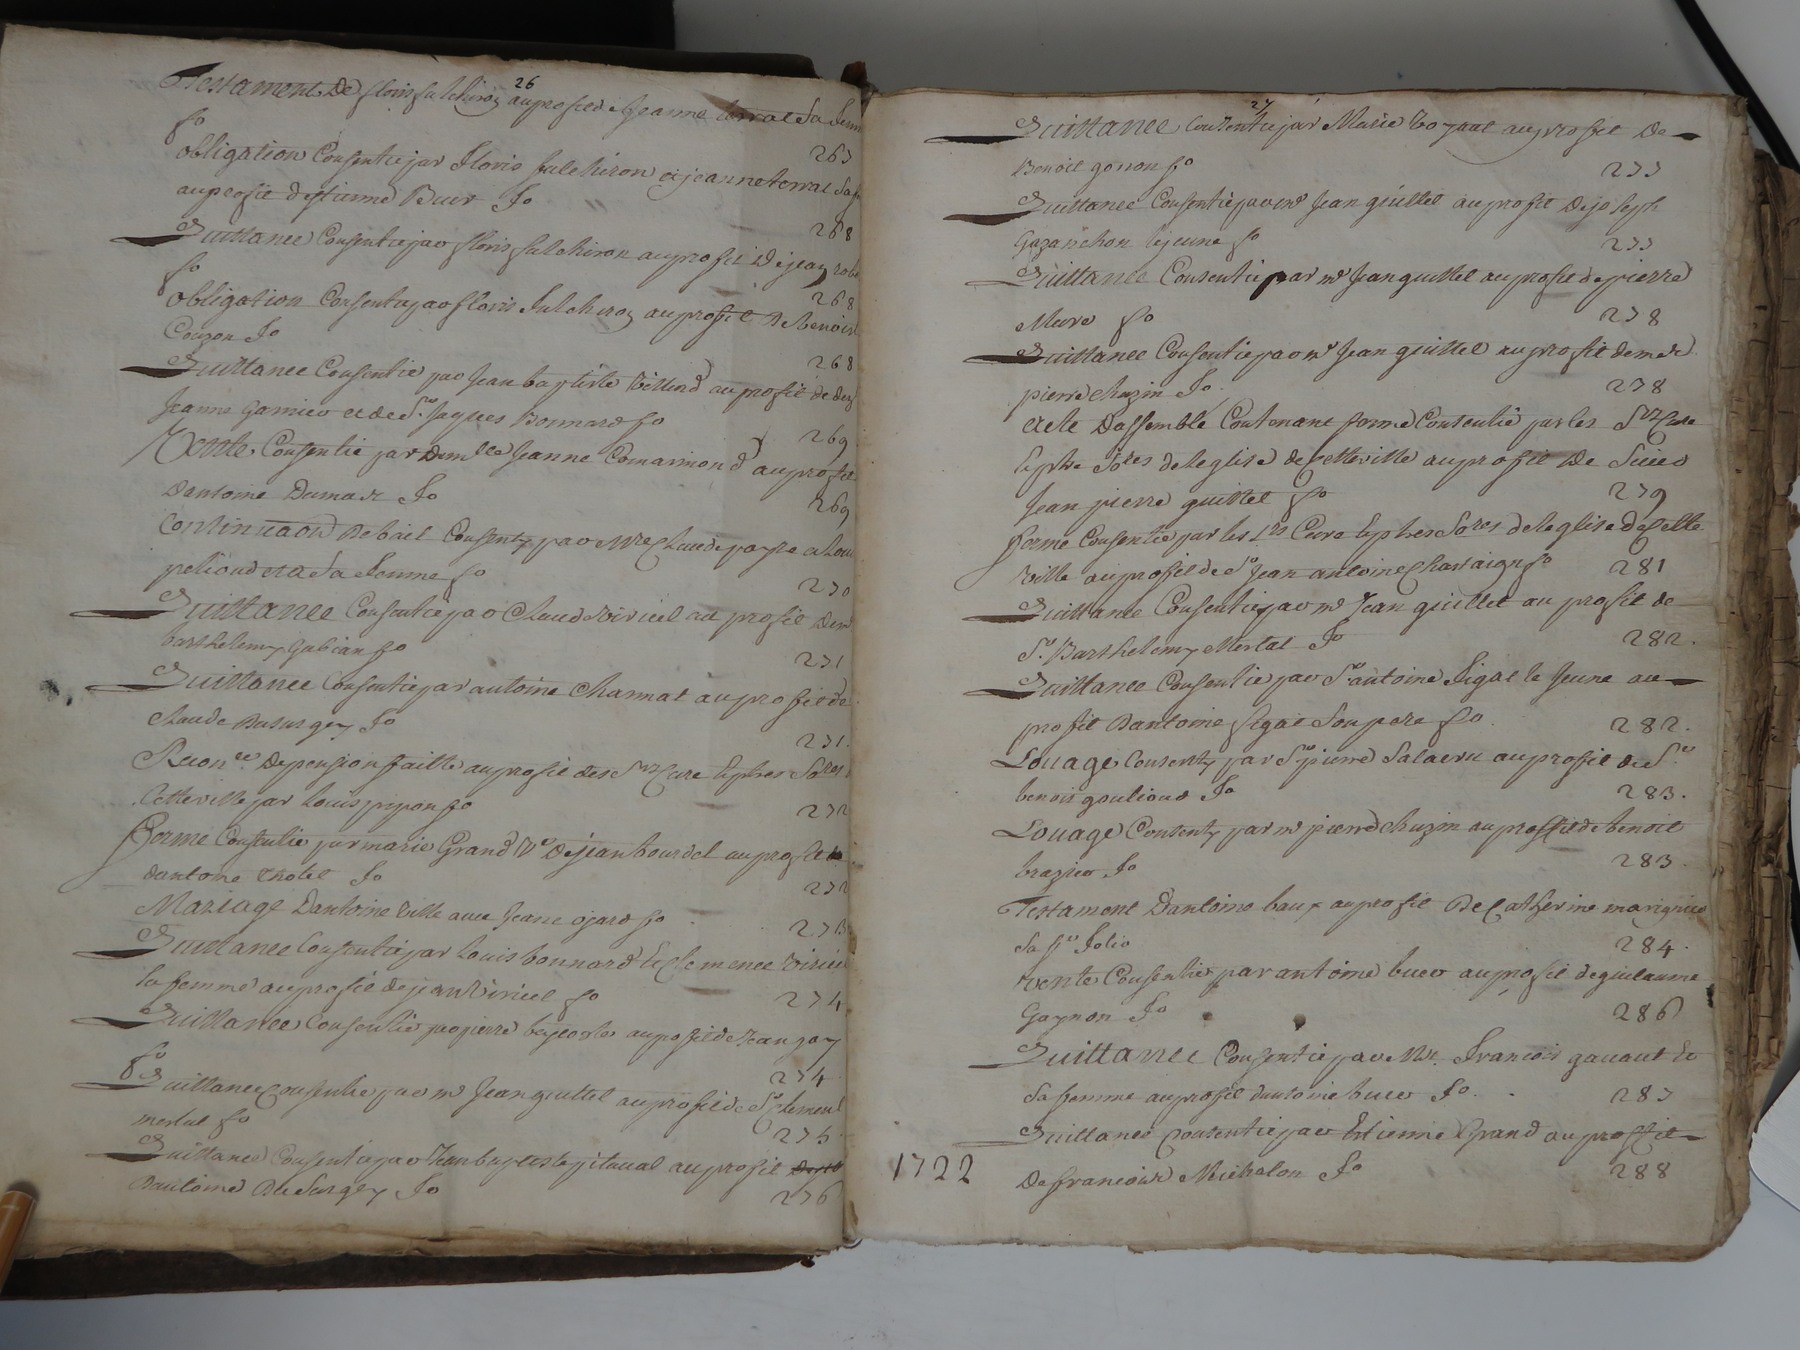 26
Testament De floris fulchiron au profit de Jeanne terrat Sa femme
fo 267
obligation Consentie par floris fulchiron et jeanne terrat Sa fe
au profit destienne Buer fo 268
Quittance Consentie par floris fulchiron au profit de jean robe
fo 268
obligation Consentie par floris fulchiron au profit De benoist
Couzon fo 268
Quittance Consentie par Jean baptiste villend au profit de
Jeanne Garnier et de Sr Jaques Bonnard fo 269
Vente Consentie par Demlle Jeanne Comarmond au profit
Dantoine Dumas fo 269
Continuaon De bail Consenty par Mre Claude payre a Louis
pelioud et a Sa femme fo 270
Quittance Consentie par Claud viricel au profit De
barthelemy Gabian fo 271
Quittance Consentie par antoine Channat au profit de
Claude Dusurgey fo 271
Recon ce De pension faitte au profit des Srs Cure Et pbres
Cetteville par Louis pipon fo 272
ferme Consentie par marie Grand Ve De jean bourdel au profit
dantoine fo 272
Mariage Dantoine ville avec Jeane ojard fo 273
Quittance Consentie par Louis bonnard Et Clemence virice
la femme au profit de jean viricel fo 274
Quittance Consentie par pierre au profit de Jean gay
fo 274
Quittance Consentie par mr Jean guittel au profit de Sr Clement
mertal fo 275
Quittance Consentie par Jean baptiste pitaval au profit
Dantoine Du Surgey fo 276
27
Quittance Consentie par Marie au profit De
Benoit gonon fo 277
Quittance Consentie par mr Jean guittel au profit De joseph
Gazanchon le jeune fo 277
Quittance Consentie par mr Jean guittel au profit de pierre
Mure fo 278
Quittance Consentie par mr Jean guittel au profit de me
pierre Chuzin fo 278
Acte Dassemblé Contenant ferme Consentie par les Srs Cure
Et pbre de leglise de Cetteville au profit De Sieur
Jean pierre guittel fo 279
ferme Consentie par les Srs Cure Et pbres de leglise de Cette
ville au profit de Sr Jean antoine Chastaign fo 281
Quittance Consentie par mr Jean guittel au profit de
Sr Barthelemy Mertal fo 282.
Quittance Consentie par Sr antoine Sigal le Jeune au
profit Dantoine Sigal Son pere fo 282.
Louage Consenty par Sr pierre Salaeru au profit de Sr
benoit goutioud fo 283.
Louage Consenty par mr pierre Chuzin au proffit de benoit
brazier fo 283.
Testament Dantoine baux au profit De Catherine marignier
Sa fe folio 284.
vente Consentie par antoine buer au profit de guilaume
Gaynon fo 286
Quittance Consentie par Mr. francois gauaut Et
Sa femme au profit dantoine buer fo. 287
Quittance Consentie par Estienne Grand au proffit
1722 De francois Michalon fo 288